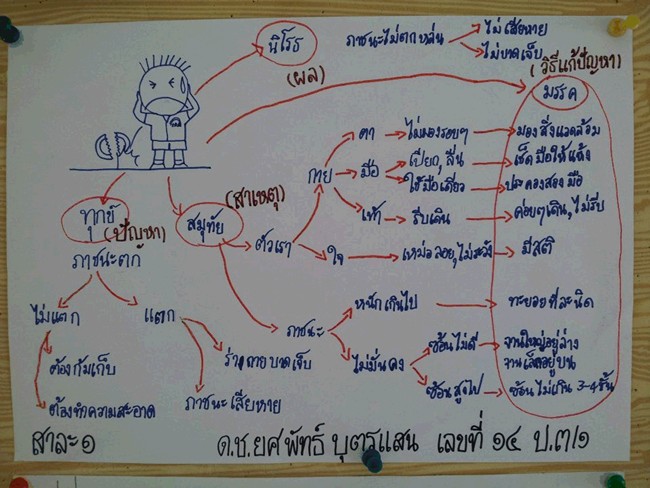 นิโรธ
(ผล)
ภาชนะไม่ตกหล่น
ไม่เสียหาย
ไม่บาดเจ็บ
(วิธีแก้ปัญหา)
มรรค
ทุกข์
(ปัญหา)
ภาชนะตก
ไม่แตก
ต้องก้มเก็บ
ต้องทำความสะอาด
แตก
ร่างกายบาดเจ็บ
ภาชนะเสียหาย
สมุทัย
(สาเหตุ)
ตัวเรา
กาย
ตา
ไม่มองรอบๆ
มองสิ่งแวดล้อม
มือ
เปียก,ลื่น
เช็ดมือให้แห้ง
ใช้มือเดียว
ประคองสองมือ
เท้า
รีบเดิน
ค่อยๆเดิน,ไม่รีบ
ใจ
เหม่อลอย,ไม่ระวัง
มีสติ
ภาชนะ
หนักเกินไป
ทะยอยทีละนิด
ไม่มั่นคง
ซ้อนไม่ดี
จานใหญ่อยู่ล่าง
จานเล็กอยู่บน
ซ้อนสูงไป
ซ้อนไม่เกิน 3-4ชั้น
สาละ๑
ด.ช.ยศพัทธ์ บุตรแสน เลขที่ ๑๔ ป.๓/๑